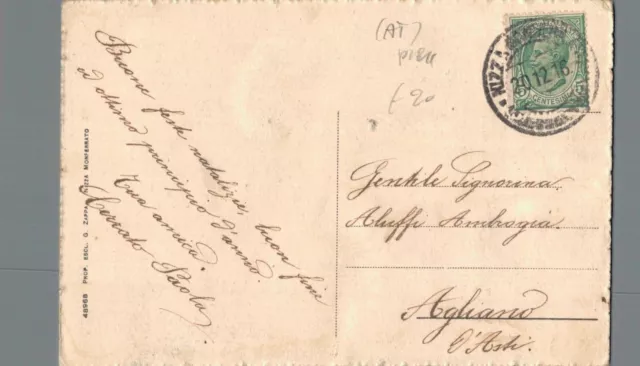 Buone feste natalizie, buon fine
d'ottimo principio d'anno.
Tua amica
Serrato Paola
48968 PROP. ESCL. G. ZAPPA NIZZA MONFERRATO
(AT)
£ 20
NIZZA
20.12.16
CENTESIMI
Gentile Signorina
Aluffi Ambrogia
Agliano
d'Asti.